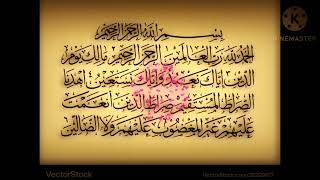 بسم الله الرحمن الرحيم
الحمد لله رب العالمين الرحمن الرحيم مالك يوم
الدين إياك نعبد وإياك نستعين اهدنا
الصراط المستقيم صراط الذين أنعمت
عليهم غير المغضوب عليهم ولا الضالين
KINEMASTER
VectorStock